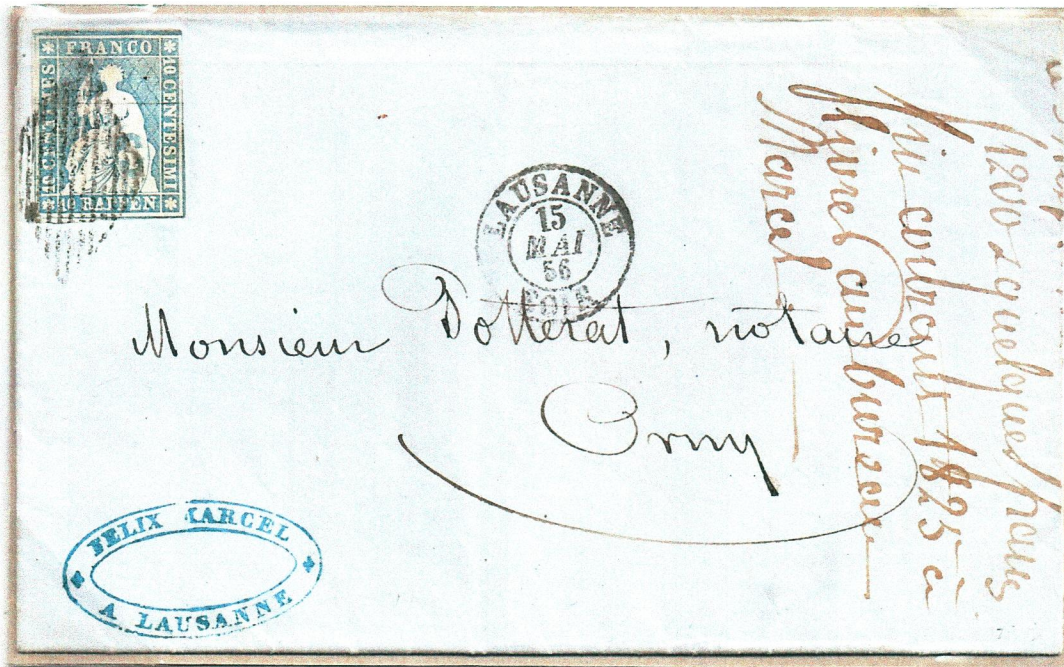 FRANCO
10 CENTIMES
10 CENTESIMI
10 RAPPEN
LAUSANNE
15
MAI
56
SOIR
Monsieur Dotterat, notaire
Orny
FELIX MARCEL
A LAUSANNE
1200 & quelques francs
1825 à
Marcel